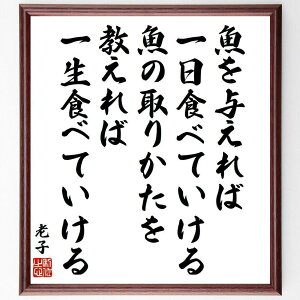 魚を与えれば
一日食べていける
魚の取りかたを
教えれば
一生食べていける
老子